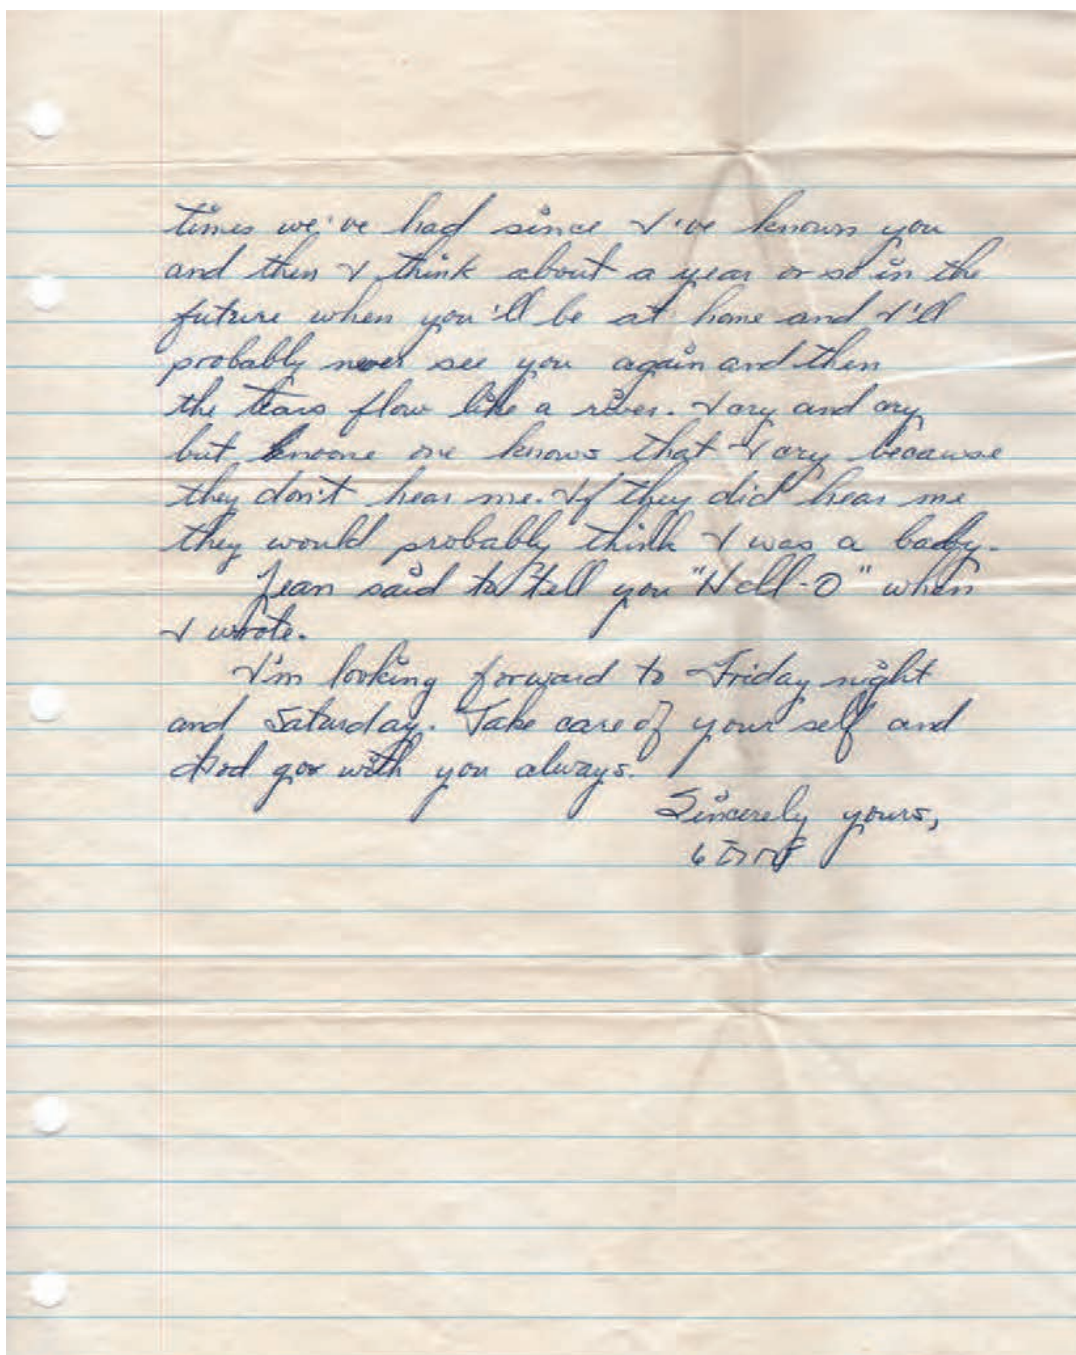 times we've had since I've known you
and then I think about a year or so in the
future when you'll be at home and I'll
probably never see you again and then
the tears flow like a river. I cry and cry
but knoone one knows that I cry because
they don't hear me. If they did hear me
they would probably think I was a badby.
Jean said to tell you "Hell-O" when
I wrote.
I'm looking forward to Friday night
and Saturday. Take care of your self and
God goe with you always.
Sincerely yours,